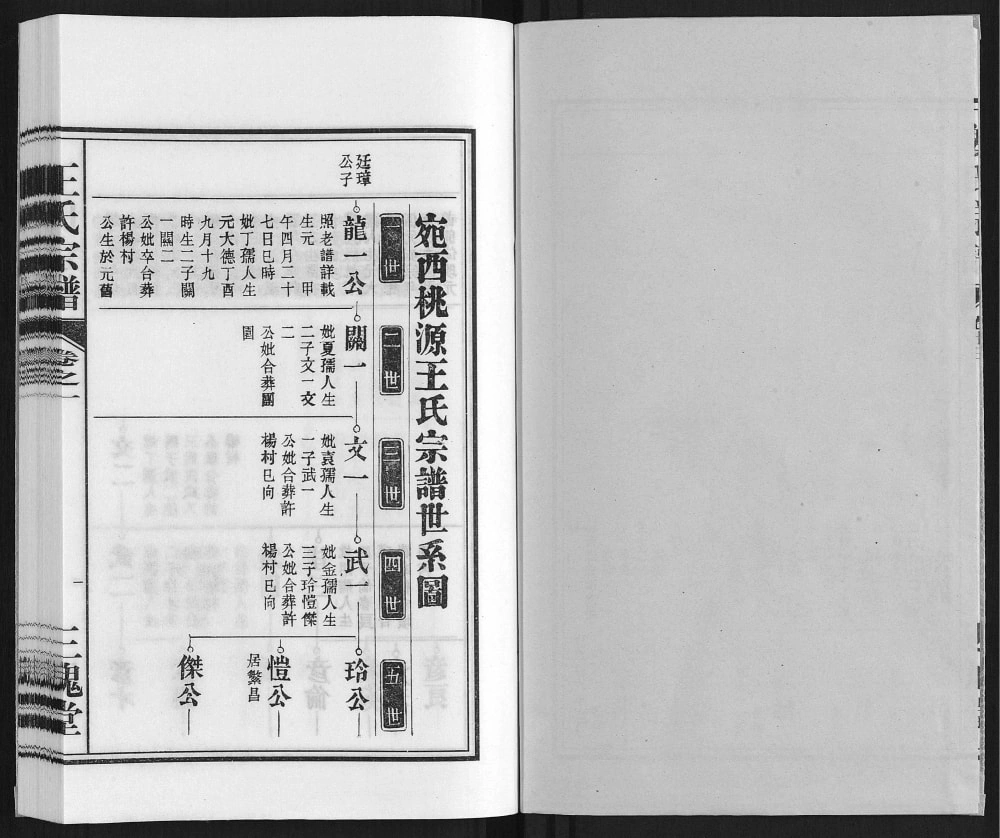 宛西桃源王氏宗譜世系圖
一世
二世
三世
四世
五世
廷璋
公子
龍一公
照老譜詳載
生元　甲
午四月二十
七日巳時
妣丁孺人生
元大德丁酉
九月十九
時生二子關
一關二
公妣卒合葬
許楊村
公生於元舊
關一
妣夏孺人生
二子文一文
二
公妣合葬團
園
文一
妣袁孺人生
一子武一
公妣合葬許
楊村巳向
武一
妣金孺人生
三子玲愷傑
公妣合葬許
楊村巳向
玲公
愷公
居繁昌
傑公
王氏宗譜
卷之一
一
三槐堂